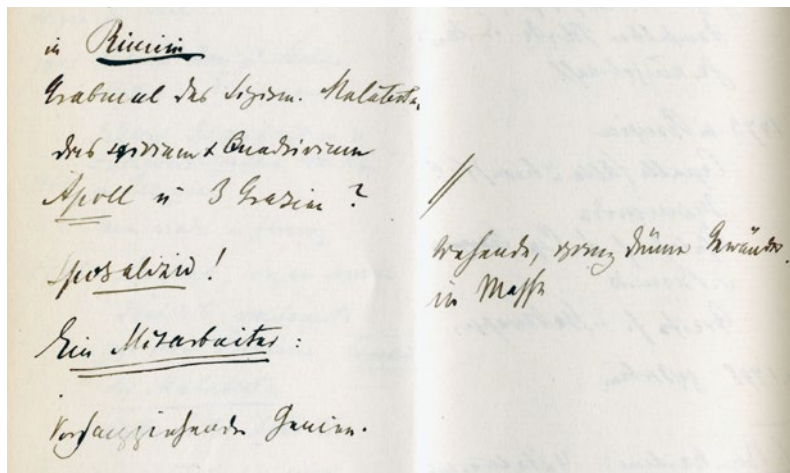 in Rimini
Grabmal des Sigism. Malatesta.
das trivium & Quadrivium
Apoll u 3 Grazien ?
Sposalizio !
Ein Mitarbeiter :
Vorhangziehende Genien.
//
wehende, ganz dünne Gewänder.
in Masse